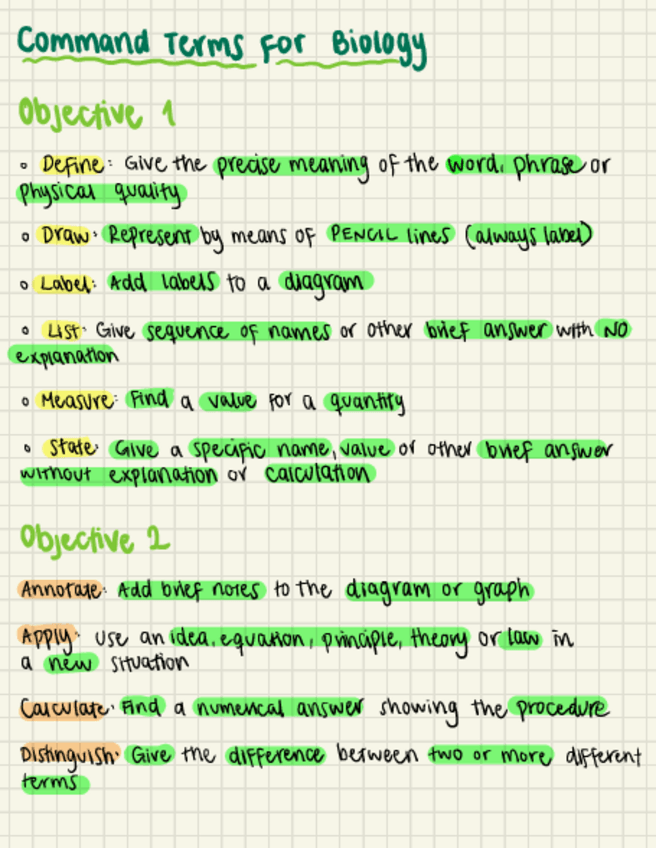 Command Terms For Biology
Objective 1
◦ Define: Give the precise meaning of the word, phrase or
physical quality
◦ Draw: Represent by means of PENCIL lines (always label)
◦ Label: Add labels to a diagram
◦ List: Give sequence of names or other brief answer with NO
explanation
◦ Measure: Find a value for a quantity
◦ State: Give a specific name, value or other brief answer
without explanation or calculation
Objective 2
Annotate: Add brief notes to the diagram or graph
Apply: Use an idea, equation, principle, theory or law in
a new situation
Calculate: Find a numerical answer showing the procedure
Distinguish: Give the difference between two or more different
terms